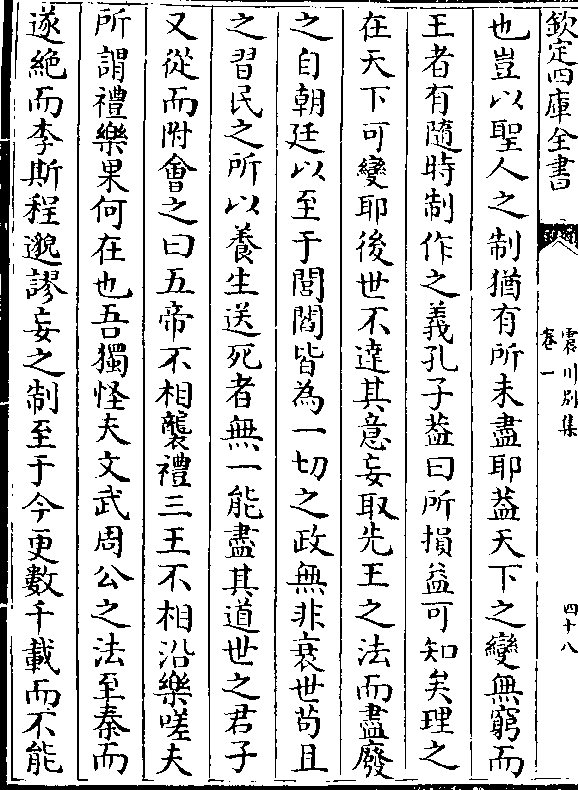 欽定四庫全書
震川別集
卷一
四十八
也豈以聖人之制猶有所未盡耶葢天下之變無窮而
王者有隨時制作之義孔子葢曰所損益可知矣理之
在天下可變耶後世不達其意妄取先王之法而盡廢
之自朝廷以至于閭閻皆為一切之政無非衰世茍且
之習民之所以養生送死者無一能盡其道世之君子
又從而附會之曰五帝不相襲禮三王不相沿樂嗟夫
所謂禮樂果何在也吾獨怪夫文武周公之法至秦而
遂絕而李斯程邈謬妄之制至于今更數千載而不能